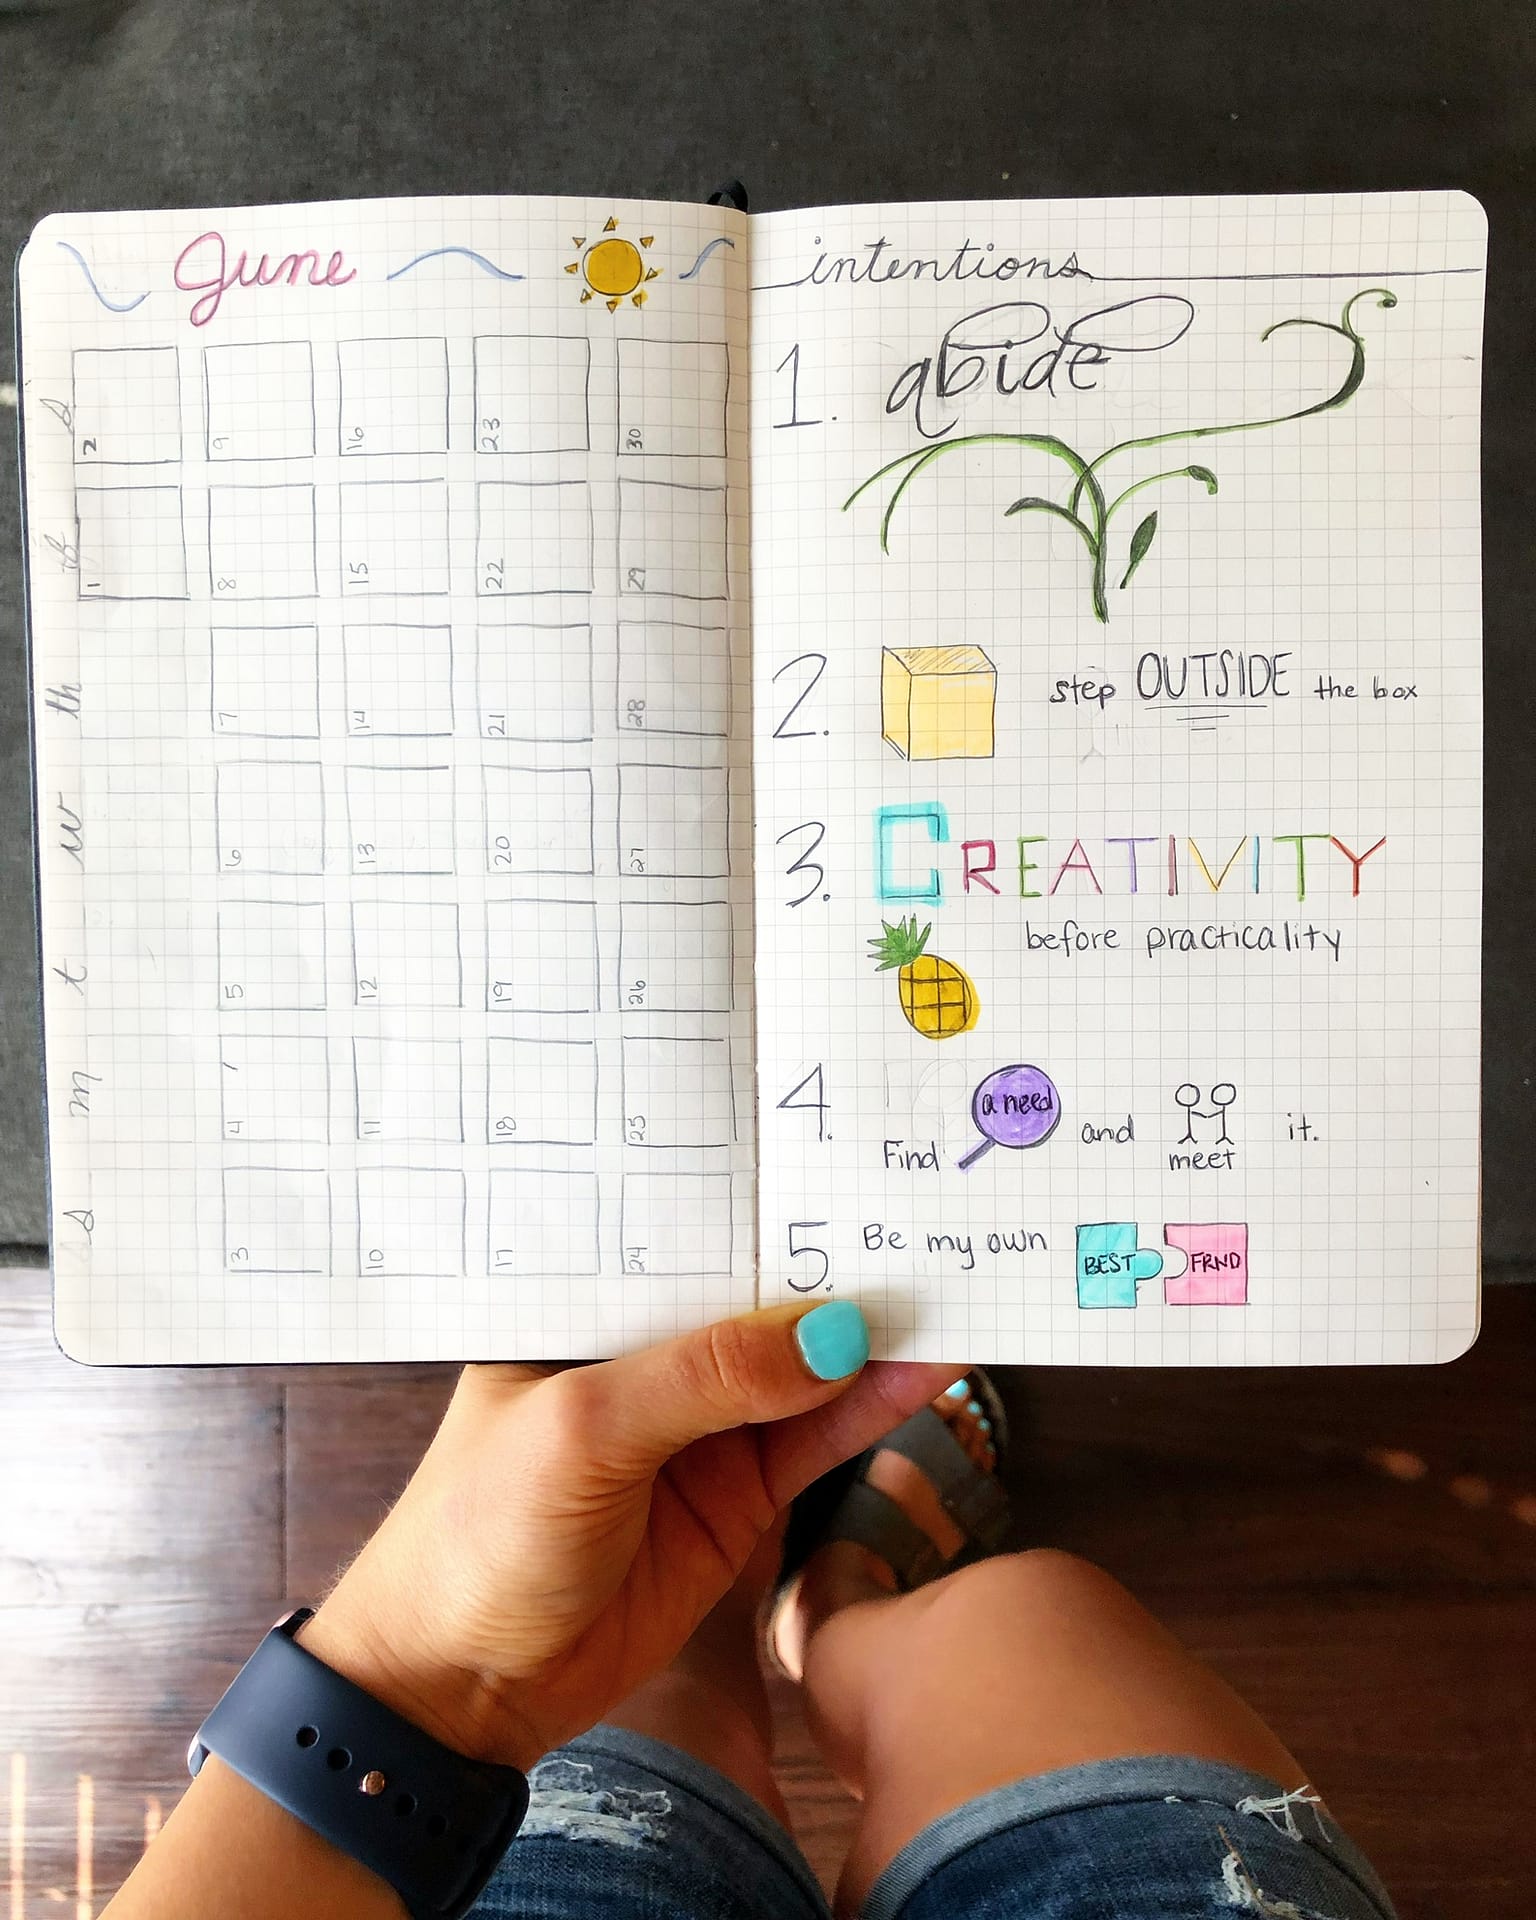 June
s m t w th f s
1 2
3 4 5 6 7 8 9
10 11 12 13 14 15 16
17 18 19 20 21 22 23
24 25 26 27 28 29 30
intentions
1. abide
2. step OUTSIDE the box
3. CREATIVITY
before practicality
4. Find a need and meet it.
5. Be my own BEST FRND